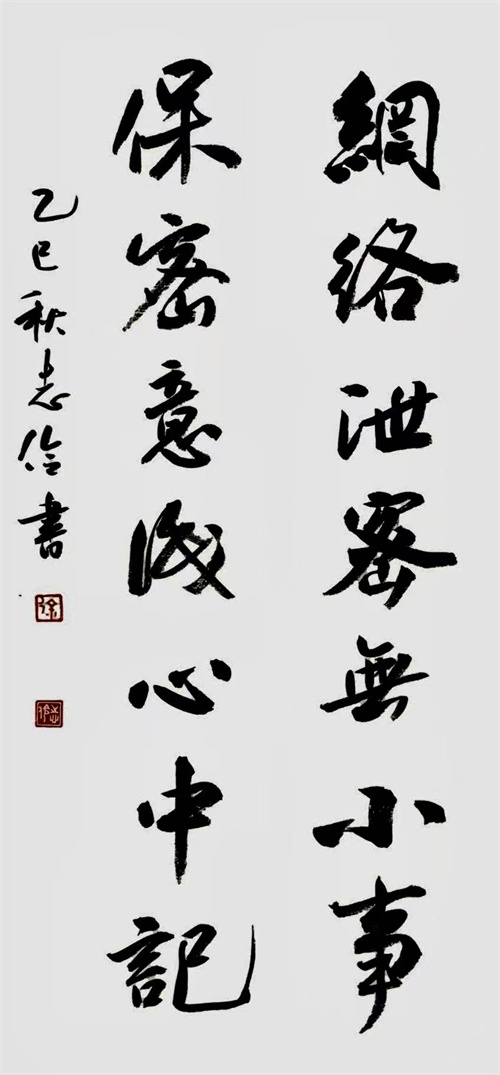 網絡泄密無小事
保密意識心中記
乙巳秋志伶書